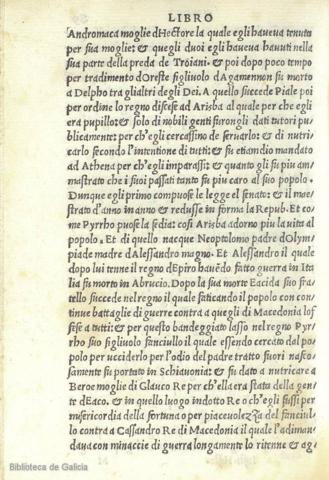 LIBRO
Andromaca moglie d'Hectore la quale egli haveva tenuta
per sua moglie: & quegli duoi egli haveva havuti nella
sua parte della preda de Troiani: & poi dopo poco tempo
per tradimento d'Oreste figliuolo d'Agamennon su morto
a Delpho tra gli altri degli Dei. A quello succede Piale poi
per ordine lo regno discese ad Arisba al quale per che egli
era pupillo: & solo di nobil genti furongli dati tutori pu
blicamente: per ch'egli cercassino de servarlo: & di nutri
carlo secondo l'intentione di tutti: & fu etiandio mandato
ad Athena per ch'egli imparassi: & quanto gli fu piu am=
mastrato che i suoi passati tanto fu piu caro al suo popolo.
Dunque egli primo compuose le legge el senato: & il mae=
strato d'anno in anno & redusse in forma la Repub. Et co=
me Pyrrho puose la sedia: cosi Arisba adorno piu la vita al
popolo. Et di quello nacque Neoptolomo padre d'Olym
piade madre d'Alessandro magno. Et Alessandro il quale
dopo lui tenne il regno d'Epiro havēdo fatto guerra in Ita
lia fu morto in Abrucio. Dopo la sua morte Eacida suo fra=
tello succede nel regno il quale faticando il popolo con con
tinue battaglie di guerra contra a quegli di Macedonia l'of
fese a tutti: & per questo bandeggiato lasso nel regno Pyr=
rho suo figliuolo fanciullo il quale essendo cercato dal po=
polo per ucciderlo per l'odio del padre tratto fuori nasco=
samente fu portato in Schiavonia: & fu dato a nutricare a
Beroe moglie di Glauco Re per ch'ella era stata della gen=
te d'Eaco. & in quello luogo indotto Re o ch'egli fussi per
misericordia della fortuna o per piacevolezza del fanciul
lo contra a Cassandro Re di Macedonia il quale l'adiman=
dava con minaccie di guerra longamente lo ritenne & ag=
Biblioteca de Galicia